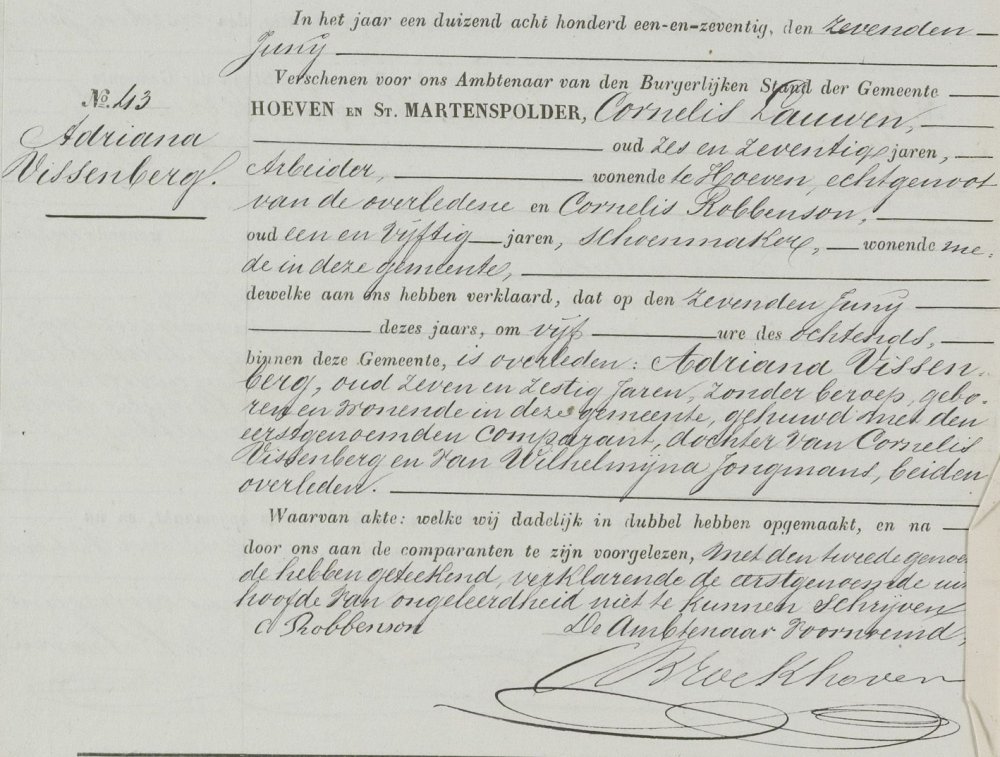 In het jaar een duizend acht honderd een-en-zeventig, den zevenden
Juny
Verschenen voor ons Ambtenaar van den Burgerlijken Stand der Gemeente
No. 43
HOEVEN EN ST. MARTENSPOLDER, Cornelis Lauwen,
Adriana
oud zes en zeventig jaren,
Vissenberg.
Arbeider, wonende te Hoeven, echtgenoot
van de overledene en Cornelis Robbenson,
oud een en vyftig jaren, schoenmaker, wonende me-
de in deze gemeente,
dewelke aan ons hebben verklaard, dat op den zevenden Juny
dezes jaars, om vyf ure des ochtends,
binnen deze Gemeente, is overleden: Adriana Vissen-
berg, oud zeven en zestig Jaren, zonder beroep, gebo-
ren en wonende in deze gemeente, gehuwd met den
eerstgenoemden comparant, dochter van Cornelis
Vissenberg en van Wilhelmyna Jongmans, beiden
overleden.
Waarvan akte: welke wij dadelijk in dubbel hebben opgemaakt, en na
door ons aan de comparanten te zijn voorgelezen, met den tweede genoem
de hebben geteekend, verklarende de eerstgenoemde uit
hoofde van ongeleerdheid niet te kunnen schrijven
C Robbenson De Ambtenaar Voornoemd,
Broekhoven